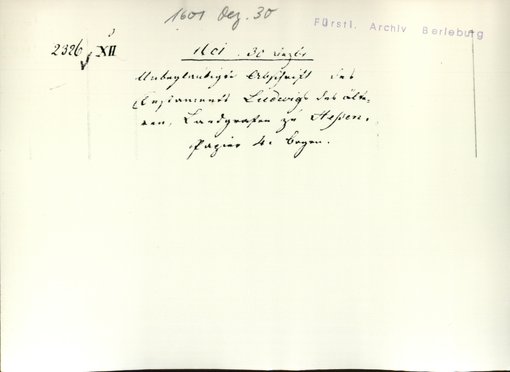 1601 Dez. 30
Fürstl. Archiv Berleburg
2326 XII
1601 30
Unbeglaubigte Abschrift des
Testaments Ludwigs des älte-
ren, Landgrafen zu Hessen.
Papier 4. Bogen.